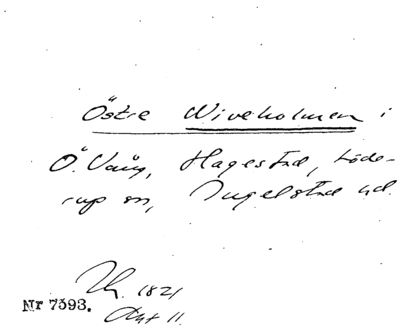 Östre Niveholmen i
Ö. Vång, Hagestad, Löde-
rup sn, Ingelstad hd.
1821
Akt 11.
Nr 7593.